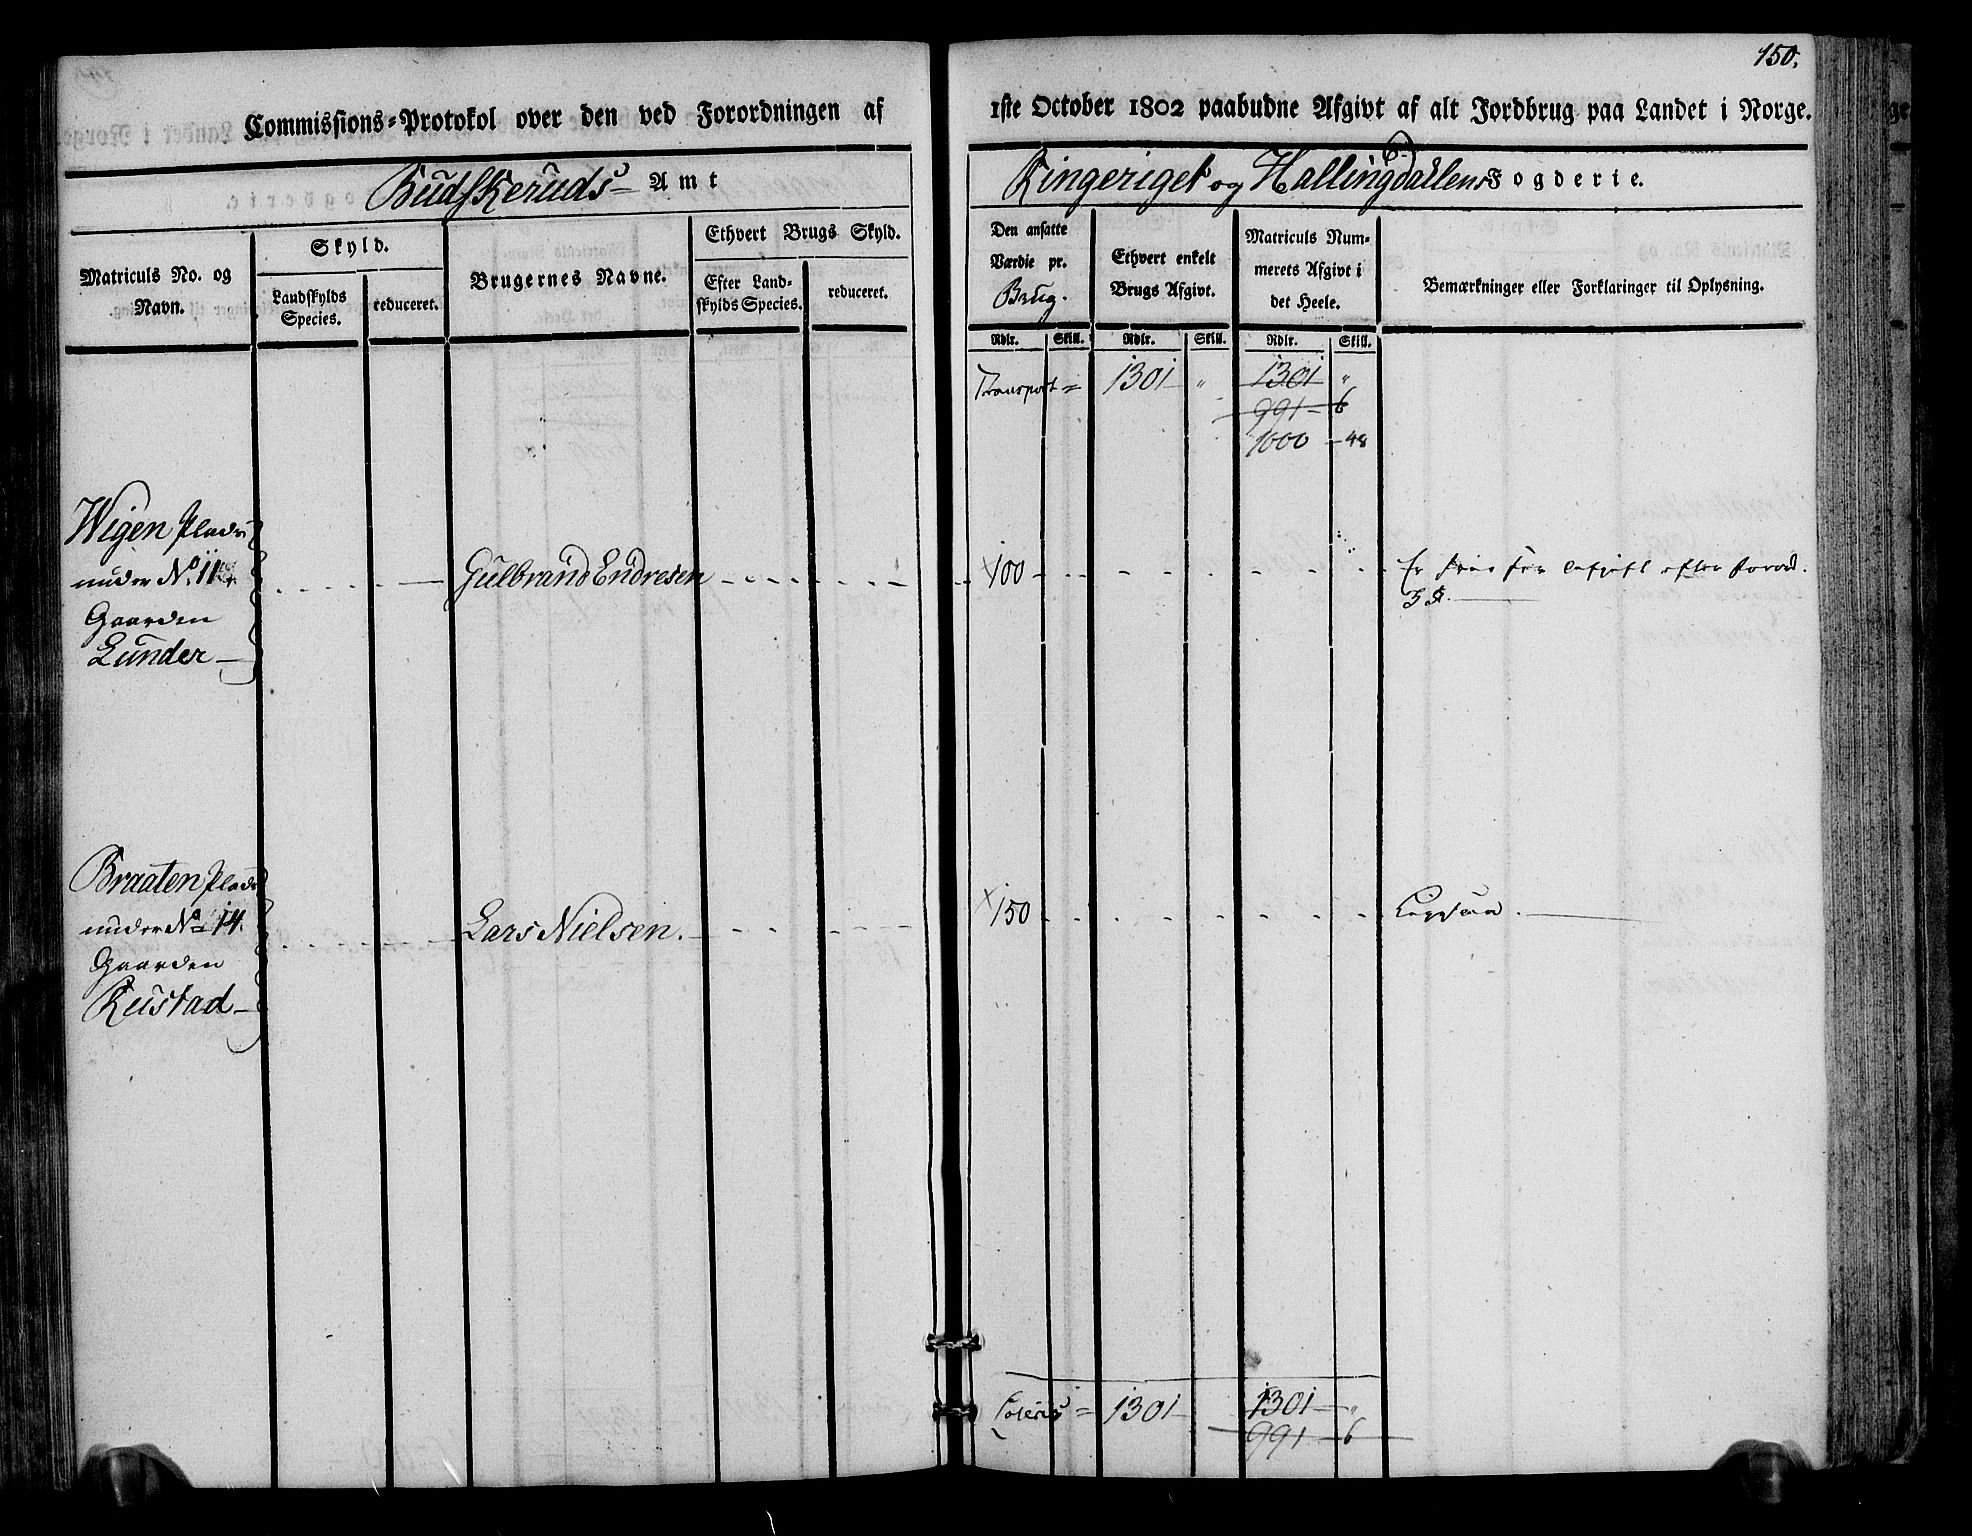 150.
Commissions-Protokol over den ved Forordningen af 1ste October 1802 paabudne Afgivt af alt Jordbrug paa Landet i Norge.
Budskeruds Amt
Ringeriget og Hallingdallens Fogderie.
Matriculs No. og Navn.
Skyld.
Landskylds Species.
reduceret.
Brugernes Navne.
Ethvert Brugs Skyld.
Efter Landskylds Species.
reduceret.
Den ansatte Værdie pr. Brug.
Ethvert enkelt Brugs Afgivt.
Matriculs Nummerets Afgivt i det Heele.
Bemærkninger eller Forklaringer til Oplysning.
Rdlr. Skill. Rdlr. Skill. Rdlr. Skill.
Transport = 1301 " 1301 "
991 - 6
1000 - 48
Wigen Plads
under No. 11
Gaarden
Lunder
Gulbrand Endresen
100
Er frie for Afgift efter Forord.
3 §.
Braaten Plads
under No 14.
Gaarden
Rustad
Lars Nielsen.
150
Ligesaa.
Lateris = 1301 1301 "
991 - 6